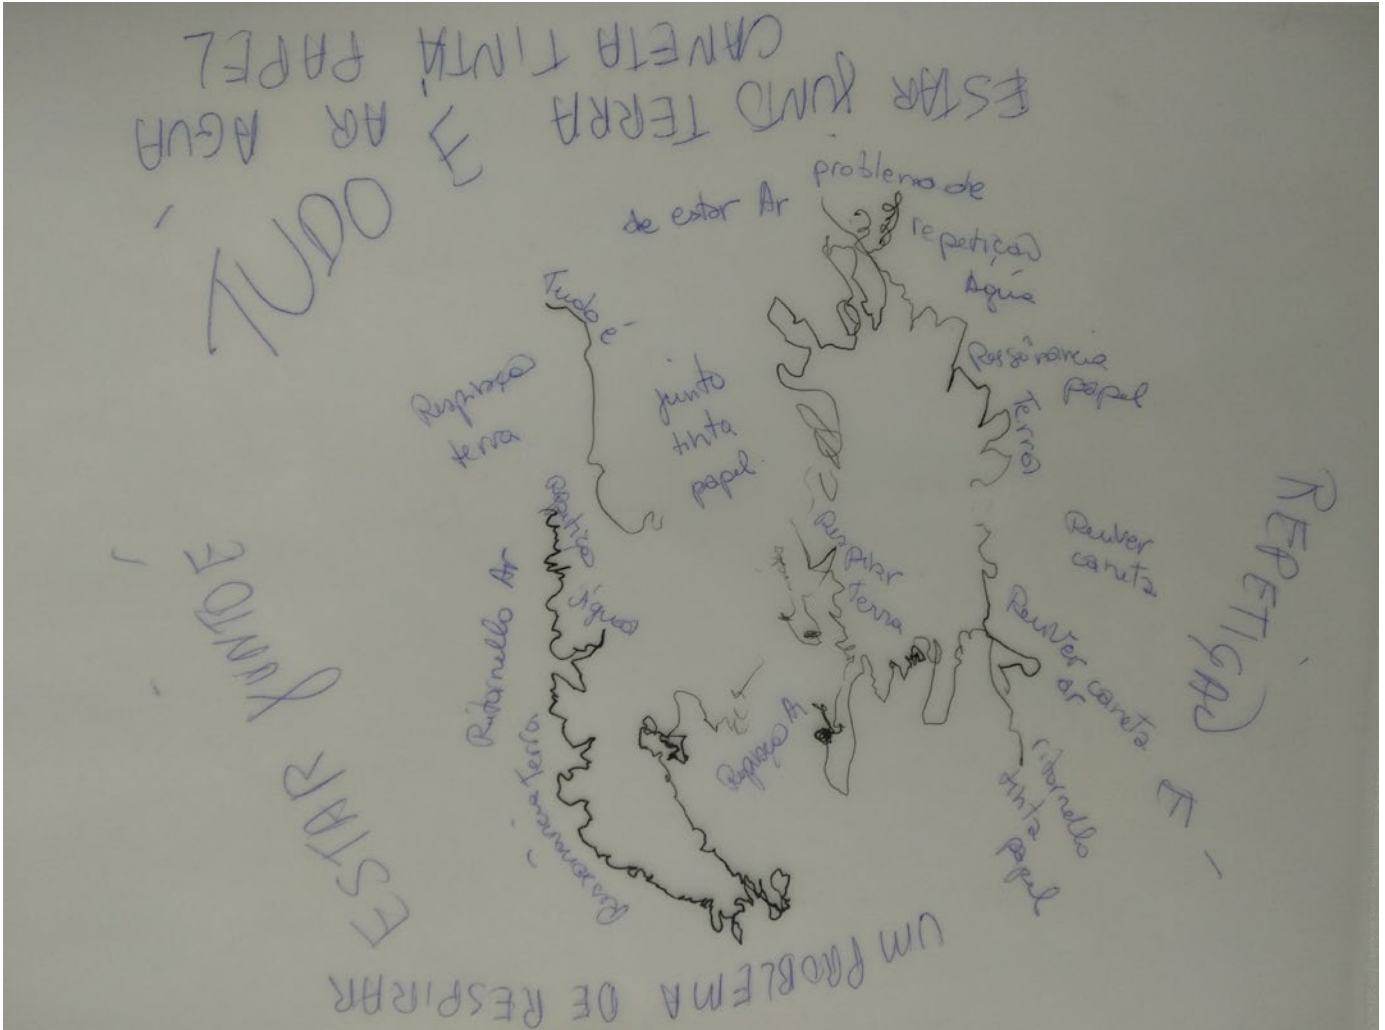 ESTAR JUNTO TERRA E AR ÁGUA
CANETA TINTA PAPEL
TUDO É
ESTAR JUNTO É
UM PROBLEMA DE RESPIRAR
É
REPETIÇÃO
de estar Ar
problema de
repetição
Água
Tudo é
Ressonância
papel
Terra
Respiração
terra
junto
tinta
papel
Repetição
Água
Ritornello Ar
Ressonância Terra
Respirar
terra
Respiração Ar
caneta
caneta
ar
ritornello
tinta
papel